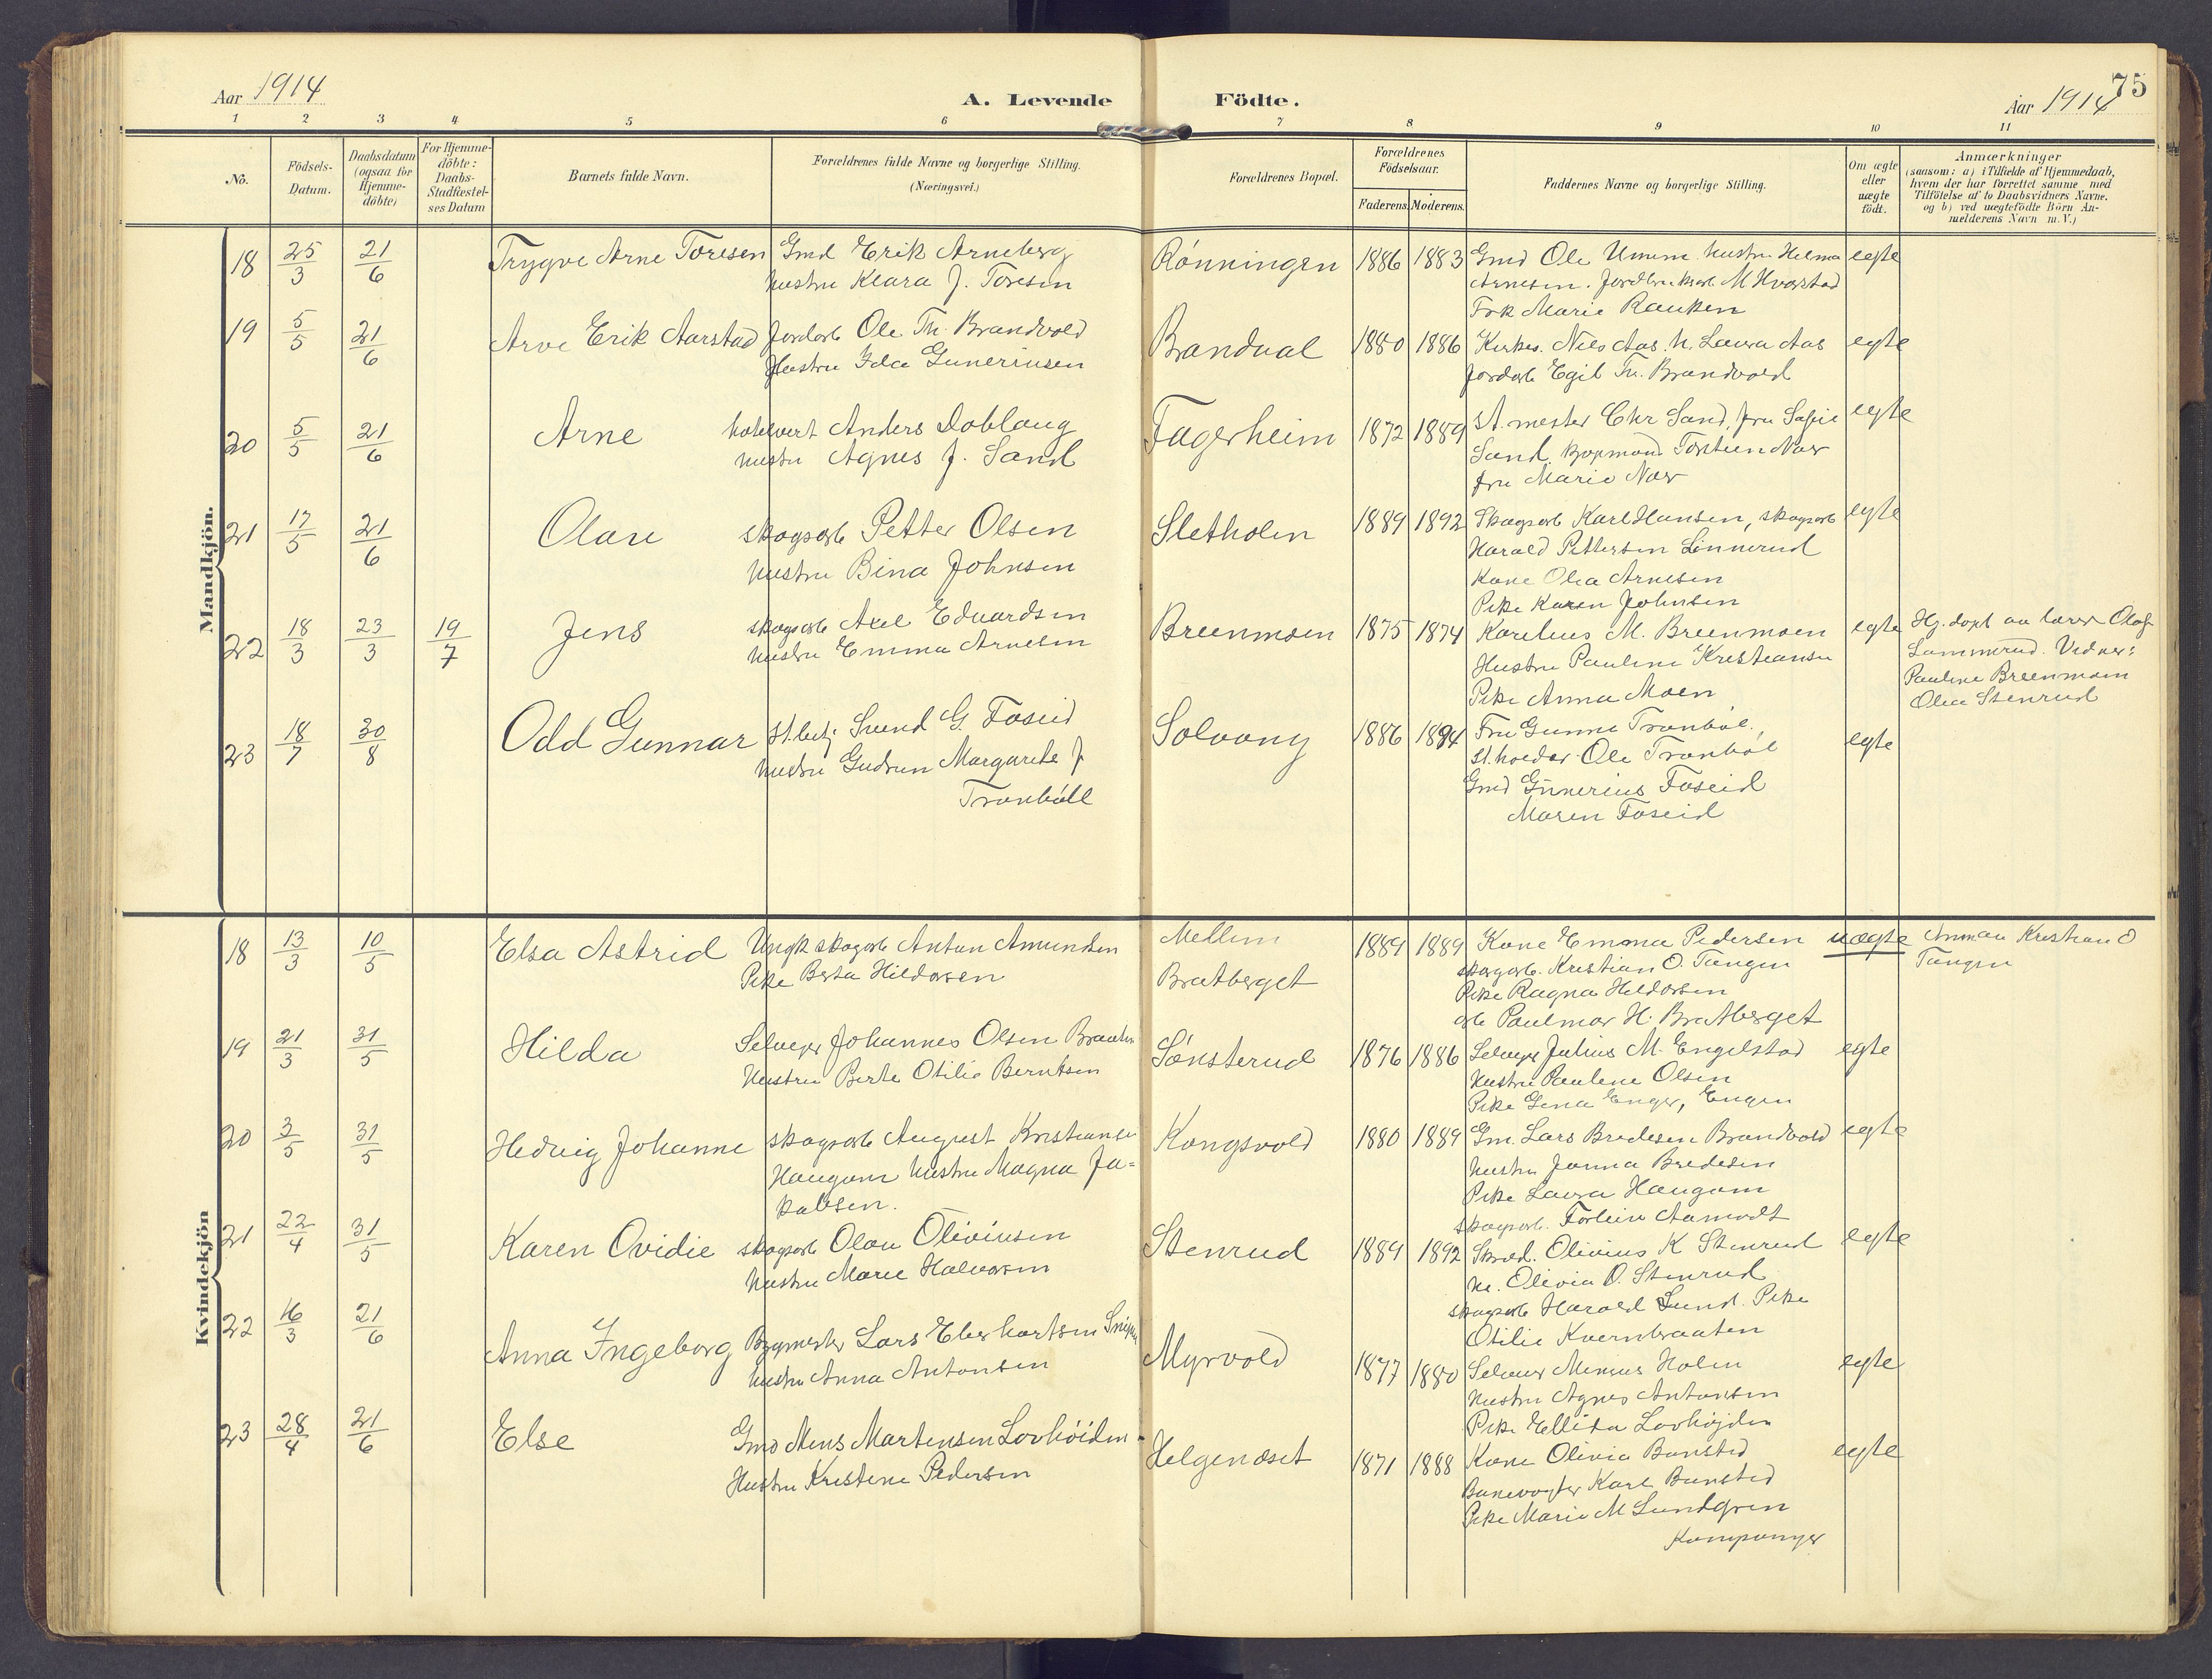 75
Aar 1914
A. Levende Födte.
Aar 1914
1 2 3 4 5 6 7 8 9 10 11
No.
Födsels-
Datum.
Daabsdatum
(ogsaa for
Hjemme-
döbte)
For Hjemme-
döbte:
Daabs-
Stadfæstel-
ses Datum
Barnets fulde Navn.
Forældrenes fulde Navne og borgerlige Stilling.
(Næringsvei.)
Forældrenes Bopæl.
Forældrenes
Födselsaar.
Faderens. Moderens.
Faddernes Navne og borgerlige Stilling.
Om ægte
eller
uægte
födt.
Anmærkninger
(saasom: a) i Tilfælde af Hjemmedaab,
hvem der har forrettet samme med
Tilföielse af to Daabsvidners Navne,
og b) ved uægtefödte Börn An-
melderens Navn m.V.)
Mandkjön.
18 25/3 21/6 Trygve Arne Toresen
Gmd Erik Arneberg
hustru Klara J. Toresen
Rønningen 1886 1883
Gmd Ole Ummm hustru Helma
Arnesen. Jordbruksarb M Hvarstad
Frk Marie Rauken
egte
19 5/5 21/6 Arve Erik Aarstad
Jordarb Ole Th. Brandvold
Hustru Ida Gunerinsen
Brandval 1880 1886
Kirkes. Nils Aas. h. Laura Aas
Jordarb Egil Th. Brandvold
egte
20 5/5 21/6 Arne
hotelvert Anders Doblaug
hustru Agnes J. Sand
Fagerheim 1872 1889
St. mester Chr Sand, fru Sofie
Sand. Kjøpmand Torstein Nær
fru Marie Nær
egte
21 17/5 21/6 Olav
skogsarb Petter Olsen
hustru Bina Johnsen
Sletholen 1889 1892
Skogsarb Karl Hansen, skogsarb
Harald Pettersen Linnerud
Kone Olea Arnesen
Pike Karen Johnsen
egte
22 18/3 23/3 19/7 Jens
skogsarb Axel Eduardsen
hustru Emma Arnesen
Breenmoen 1875 1874
Karelius M. Breenmoen
Hustru Pauline Kristiansen
Pike Anna Moen
egte
Hj. døpt av lærer Olaf
Lammerud. Vidner:
Pauline Breenmoen
Olea Stenrud
23 18/7 30/8 Odd Gunnar
St.betj Svend G. Foseid
hustru Gudrun Margarete J
Tronbøll
Solvang 1886 1894
Fru Gunna Tronbøl.,
St.holder Ole Tronbøl
Gmd Gunerius Foseid
Maren Foseid
egte
Kvindekjön
18 13/3 10/5 Elsa Astrid
Ungk skogarb Anton Amundsen
Pike Berta Hildorsen
Mellem
Bratberget
1889 1889
Kone Emma Pedersen
skogarb. Kristian O. Tangen
Pike Ragna Hildorsen
arb Paulmar H. Bratberget
uægte
Anm av Kristian O
Tangen
19 21/3 31/5 Hilda
Selveier Johannes Olsen Braaten
Hustru Berte Otilie Berntsen
Sønsterud 1876 1886
Selveier Julius M. Engelstad
hustru Pauline Olsen
Pike Gina Enger, Engen
egte
20 3/5 31/5 Hedvig Johanne
skogsarb August Kristiansen
Haugom hustru Magna Ja=
kobsen.
Kongsvold 1880 1889
Gm. Lars Bredesen Brandvold
hustru Janna Bredesen
Pike Laura Haugom
skogsarb. Torleiv Aamodt
egte
21 22/4 31/5 Karen Ovidie
skogsarb Olav Oliviusen
hustru Marie Halvorsen
Stenrud 1889 1892
Skred. Olivius K Stenrud
hu. Olivia O. Stenrud
skogsarb Harald Lund. Pike
Otilie Kvernbraaten
egte
22 16/3 21/6 Anna Ingeborg
Bygmester Lars Eberhartsen
hustru Anna Antonsen
Myrvold 1877 1880
Selveier Menius Holen
hustru Agnes Antonsen
Pike Ellida Lovhøjden
egte
23 28/4 21/6 Else
Gmd Mens Martensen Lovhöiden
Hustru Kristine Pedersen
Helgenæset 1871 1888
Kone Olivia Bansted
Banevogter Karl Bansted
Pike Marie M Lundgren
egte